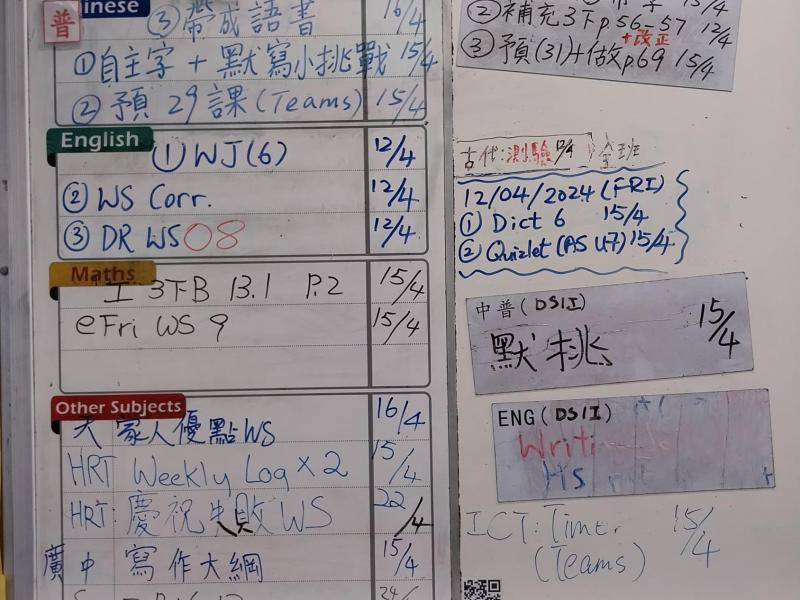 普 inese ③帶成語書 16/4
①自主字 + 默寫小挑戰 15/4
②預 29課 (Teams) 15/4
English
①WJ(6) 12/4
② WS Corr. 12/4
③ DR WS 08 12/4
Maths
工 3下B 13.1 P.2 15/4
eFri WS 9 15/4
Other Subjects
天 家人優點WS 16/4
HRT Weekly Log x 2 15/4
HRT 慶祝失敗 WS 22/4
廣中 寫作大綱 15/4
24/
15/4
②補充3下p56-57 12/4
+改正
③預(31)+做p.69 15/4
古代:測驗 12/4 全班
12/04/2024 (FRI)
① Dict 6 15/4
② Quizlet (PS U7) 15/4
中普(DSII)
默挑 15/4
ENG(DSII)
Writi
HS
ICT: Timer 15/4
(Teams)